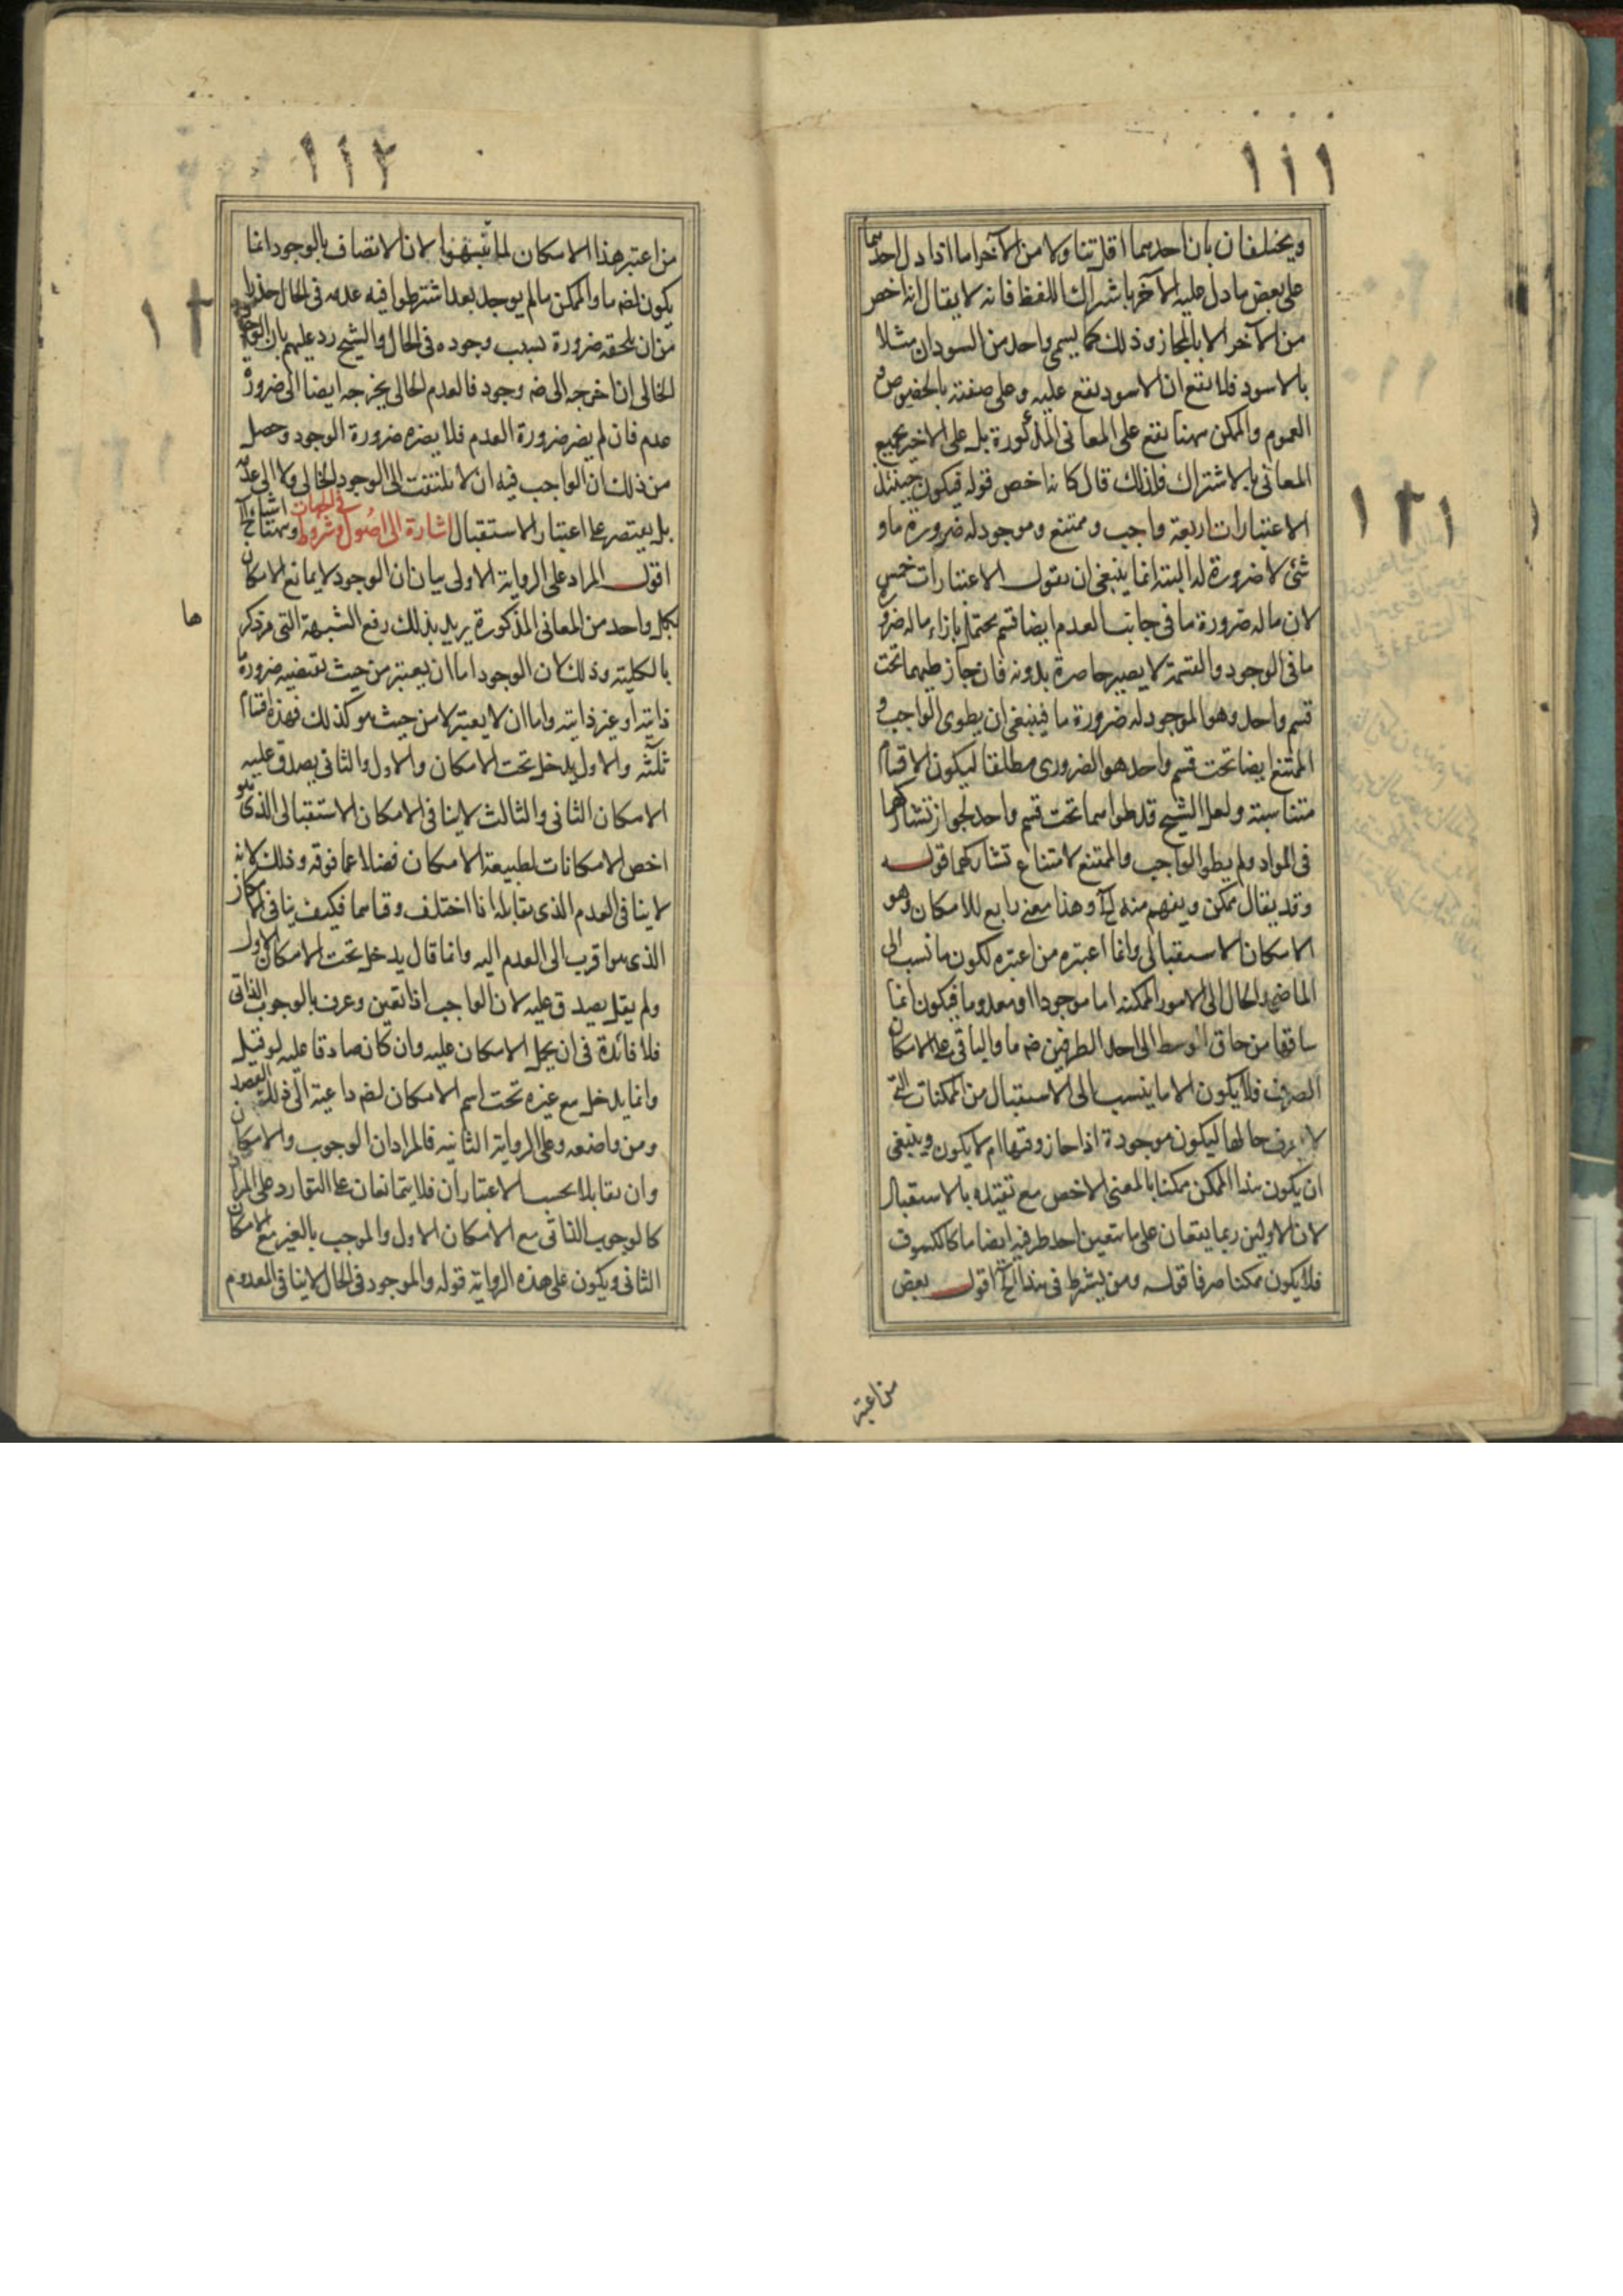 ١١١
ويختلفان بان احدهما اقل تناولا من الآخر اما اذا دل احدهما
على بعض ما دل عليه الآخر باشتراك اللفظ فانه لا يقال انه اخص
من الآخر الا بالمجاز وذلك كما يسمى واحد من السودان مثلا
بالاسود فلا يقع ان الاسود يقع عليه وعلى صفته بالخصوص و
العموم والممكن ههنا يقع على المعانى المذكورة بل على الاخير بجميع
المعانى بالاشتراك فلذلك قال كانه اخص قوله فيكون حينئذ
الاعتبارات اربعة واجب وممتنع وموجود له ضرورة ما و
شئ لا ضرورة له البتة انما ينبغى ان يقول الاعتبارات خمس
لان ما له ضرورة ما فى جانب العدم ايضا قسم يحتمل بازاء ما له ضرورة
ما فى الوجود والقسمة لا يصير حاصرة بدونه فان جاز طيهما تحت
قسم واحد وهو الموجود له ضرورة ما فينبغى ان يطوى الواجب و
الممتنع ايضا تحت قسم واحد هو الضرورى مطلقا ليكون الاقسام
متناسبة ولعل الشيخ قد طواهما تحت قسم واحد لجواز تشاركهما
فى المواد ولم يطو الواجب والممتنع لامتناع تشاركهما قوله
وقد يقال ممكن ويفهم منه الخ وهذا معنى رابع للامكان وهو
الامكان الاستقبالى وانما اعتبره من اعتبره لكون ما نسب الى
الماضى والحال الى الامور الممكنة اما موجودا او معدوما فيكون انما
ساقها من حاق الوسط الى احد الطرفين ضه ما والباقى على الامكان
الصرف فلا يكون الا ما ينسب الى الاستقبال من الممكنات التى
لا يعرف حالها ليكون موجودة اذا حاز وقتها ام لا يكون وينبغى
ان يكون هذا الممكن ممكنا بالمعنى الاخص مع تقيده بالاستقبال
لان الاولين ربما يقعان على ما تعين احد طرفيه ايضا ما كالكسوف
فلا يكون ممكنا صرفا قوله ومن يشترط فى هذا الخ اقول بعض
من اعتبر
١٢١
١١٢
من اعتبر هذا الامكان لما تنبهوا لان الاتصاف بالوجود انما
يكون لضه ما والممكن ما لم يوجد بعد اشترطوا فيه عدمه فى الحال حذرا
من ان يلحقه ضرورة بسبب وجوده فى الحال والشيخ رد عليهم بان الوجود
الحالى ان اخرجه الى ضه وجود فالعدم الحالى يخرجه ايضا الى ضرورة
عدم فان لم يضر ضرورة العدم فلا يضره ضرورة الوجود وحصل
من ذلك ان الواجب فيه ان لا يلتفت الى الوجود الحالى ولا الى عدمه
بل يقتصر على اعتبار الاستقبال اشارة الى اصول وشروط فى الجهات وههنا اشياء الخ
اقول المراد على الرواية الاولى بيان ان الوجود لا يمانع الامكان
بكل واحد من المعانى المذكورة يريد بذلك رفع الشبهة التى مر ذكرها
بالكلية وذلك لان الوجود اما ان يعتبر من حيث تقتضيه ضرورة
ذاتية او غير ذاتية واما ان لا يعتبر لا من حيث هو كذلك فهذه اقسام
ثلثة والاول يدخل تحت الامكان والاول والثانى يصدق عليه
الامكان الثانى والثالث لا ينافى الامكان الاستقبالى الذى هو
اخص الامكانات لطبيعة الامكان فضلا عما فوقه وذلك لانه
لا ينافى العدم الذى يقابله اذا اختلف وقتاهما فكيف ينافى الامكان
الذى هو اقرب الى العدم اليه وانما قال يدخل تحت الامكان الاول
ولم يقل يصدق عليه لان الواجب اذا تعين وعرف بالوجوب الذاتى
فلا فائدة فى ان يحمل الامكان عليه وان كان صادقا عليه لو قيل
وانما يدخل مع غيره تحت اسم الامكان لضه داعية الى ذلك القصد
ومن واضعه وعلى الرواية الثانية فالمراد ان الوجوب والامكان
وان تقابلا بحسب الاعتباران فلا يتمانعان على التوارد على المراد
كالوجوب الذاتى مع الامكان الاول والموجب بالغير مع الامكان
الثانى ويكون على هذه الرواية قوله والموجود فى الحال لا ينافى المعدوم
١٢
ها